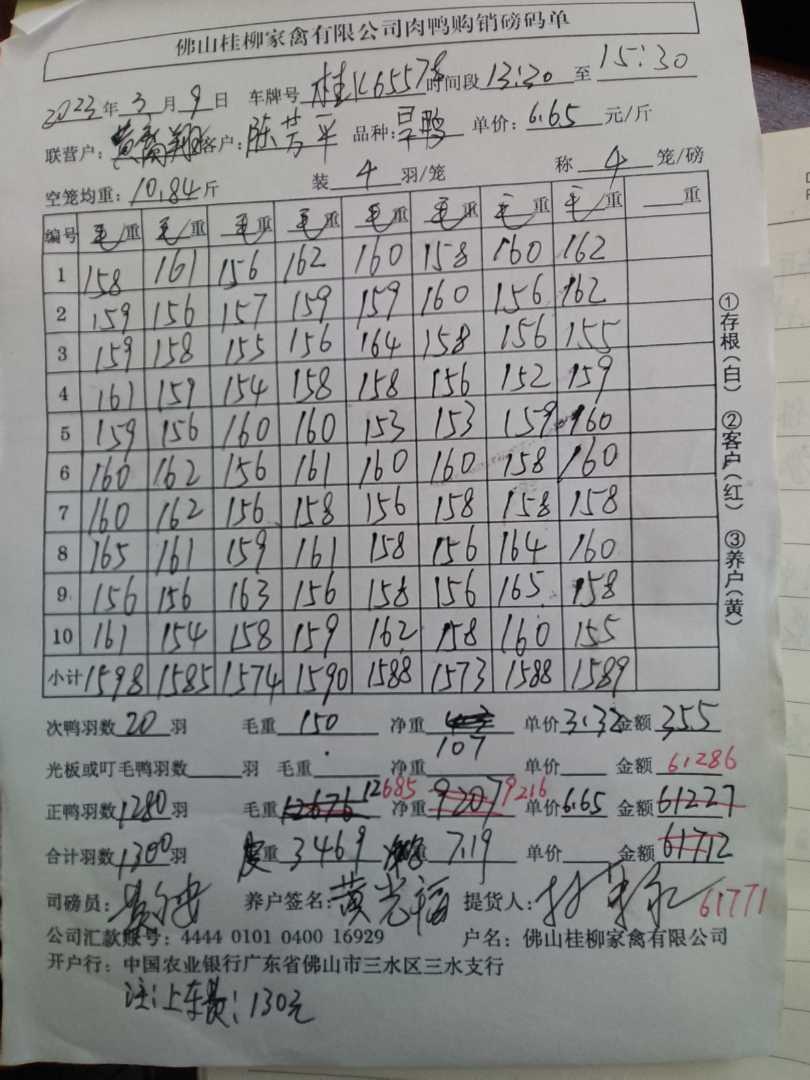 佛山桂柳家禽有限公司肉鸭购销磅码单
2023年3月9日 车牌号 桂K6557 时间段 13:30 至 15:30
联营户: 黄 翔 客户: 陈芳平 品种: 旱鸭 单价: 6.65 元/斤
空笼均重: 10.84斤 装 4 羽/笼 称 4 笼/磅
编号 毛重 毛重 毛重 毛重 毛重 毛重 毛重 毛重 重
1 158 161 156 162 160 158 160 162
2 159 156 157 159 159 160 156 162
3 159 158 155 156 164 158 156 155
4 161 159 154 158 158 156 152 159
5 159 156 160 160 153 153 159 160
6 160 162 156 161 160 160 158 160
7 160 162 156 158 156 158 158 158
8 165 161 159 161 158 156 164 160
9 156 156 163 156 158 156 165 158
10 161 154 158 159 162 158 160 155
小计 1598 1585 1574 1590 1588 1573 1588 1589
①存根(白) ②客户(红) ③养户(黄)
次鸭羽数 20 羽 毛重 150 净重 107 单价 3.32 金额 355
光板或叮毛鸭羽数 羽 毛重 净重 单价 金额 61286
正鸭羽数 1280 羽 毛重 12676 12685 净重 9207 9216 单价 6.65 金额 61227
合计羽数 1300 羽 重 3469 7.19 单价 金额 61712
司磅员: 养户签名: 黄光福 提货人: 61771
公司汇款账号: 4444 0101 0400 16929 户名: 佛山桂柳家禽有限公司
开户行: 中国农业银行广东省佛山市三水区三水支行
注:上车费:130元